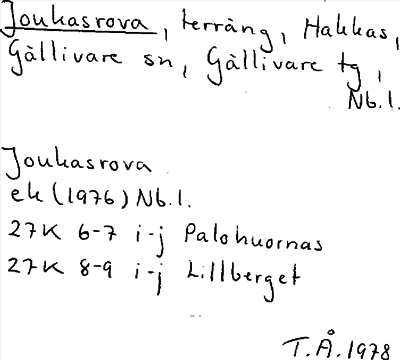 Joukasrova, terräng, Hakkas,
Gällivare sn, Gällivare tg,
Nb.l.
Joukasrova
ek (1976) Nb.l.
27K 6-7 i-j Palohuornas
27K 8-9 i-j Lillberget
T.Å.1978